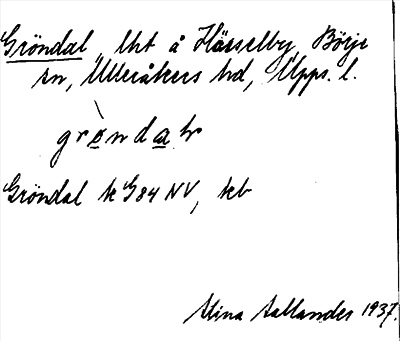 Gröndal, lht å Hässelby, Börje
sn, Ulleråkers hd, Upps. l.
grøndaɫr
Gröndal k G84 NV, kb
Stina Sallander 1937.